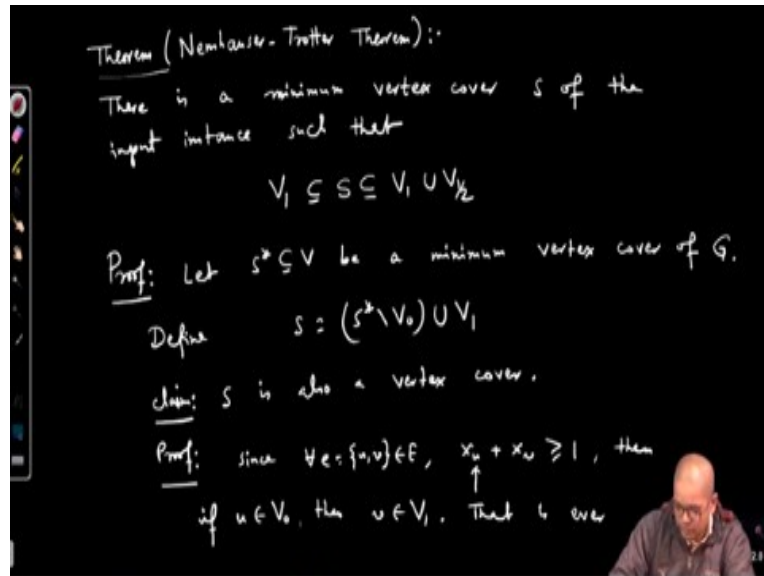 Theorem (Nemhauser-Trotter Theorem):-
There is a minimum vertex cover S of the
input instance such that
V₁ ⊆ S ⊆ V₁ ∪ V½
Proof: Let S* ⊆ V be a minimum vertex cover of G.
Define S = (S* \ V₀) ∪ V₁
claim: S is also a vertex cover.
Proof: since ∀e={u,v}∈E, xᵤ + xᵥ ≥ 1, then
↑
if u ∈ V₀, then v ∈ V₁. That is ever